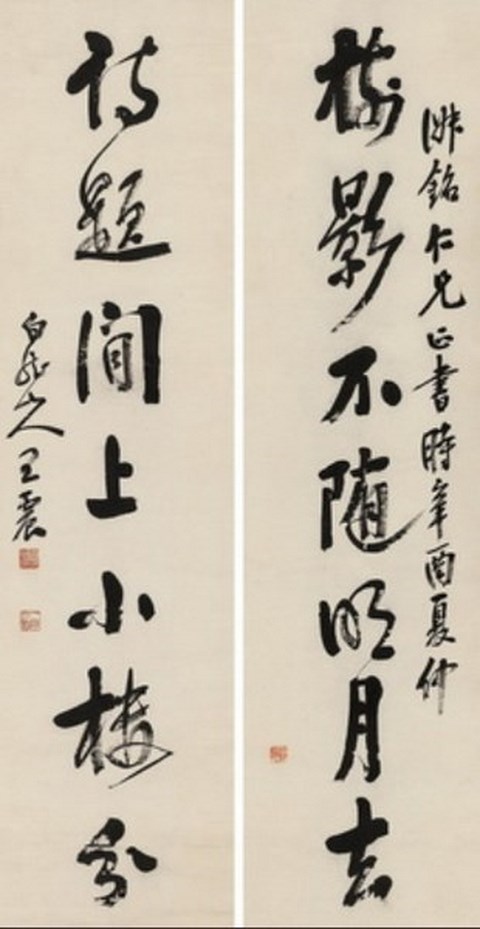 銘仁兄正書時辛酉夏仲
樹影不随明月去
詩題閒上小楼分
白龍山人王震